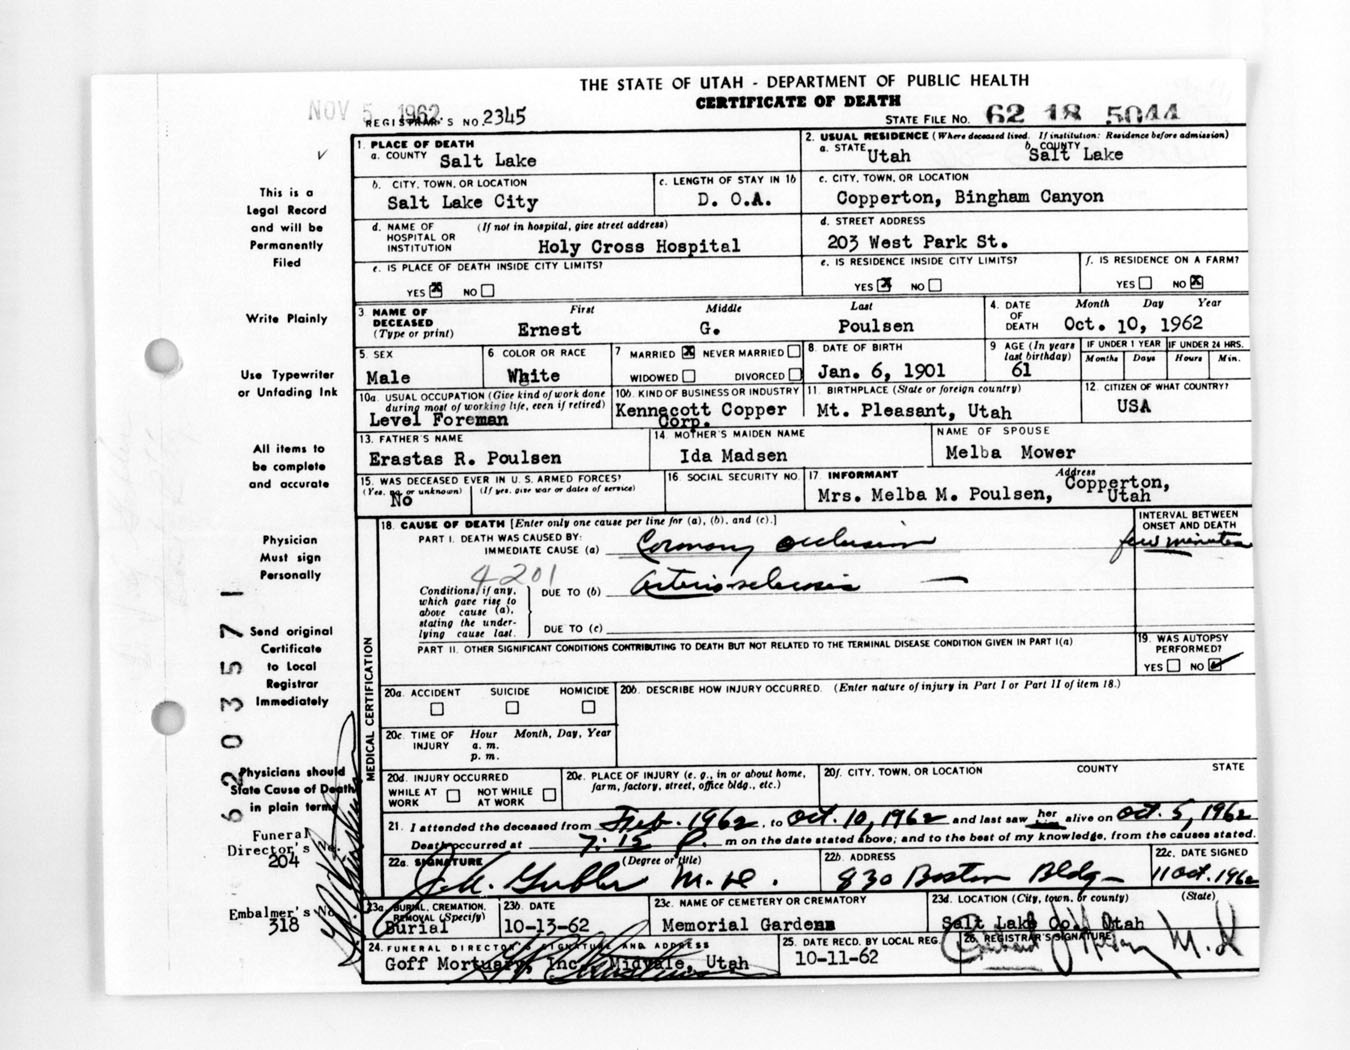 THE STATE OF UTAH - DEPARTMENT OF PUBLIC HEALTH
CERTIFICATE OF DEATH
NOV 5 1962
REGISTRAR'S NO. 2345
STATE FILE NO. 62 18 5044
This is a
Legal Record
and will be
Permanently
Filed
Write Plainly
Use Typewriter
or Unfading Ink
All items to
be complete
and accurate
Physician
Must sign
Personally
Send original
Certificate
to Local
Registrar
Immediately
Physicians should
State Cause of Death
in plain terms
Funeral
Director's
204
Embalmer's No.
318
62 0 3 5 7 1
1. PLACE OF DEATH
a. COUNTY Salt Lake
2. USUAL RESIDENCE (Where deceased lived. If institution: Residence before admission)
a. STATE Utah b. COUNTY Salt Lake
b. CITY, TOWN, OR LOCATION
Salt Lake City
c. LENGTH OF STAY IN 1b
D. O.A.
c. CITY, TOWN, OR LOCATION
Copperton, Bingham Canyon
d. NAME OF HOSPITAL OR INSTITUTION (If not in hospital, give street address)
Holy Cross Hospital
d. STREET ADDRESS
203 West Park St.
e. IS PLACE OF DEATH INSIDE CITY LIMITS?
YES X NO
e. IS RESIDENCE INSIDE CITY LIMITS?
YES X NO
f. IS RESIDENCE ON A FARM?
YES NO X
3 NAME OF DECEASED (Type or print)
First Middle Last
Ernest G. Poulsen
4. DATE OF DEATH Month Day Year
Oct. 10, 1962
5. SEX
Male
6 COLOR OR RACE
White
7 MARRIED X NEVER MARRIED
WIDOWED DIVORCED
8. DATE OF BIRTH
Jan. 6, 1901
9 AGE (In years last birthday)
61
IF UNDER 1 YEAR
Months Days
IF UNDER 24 HRS.
Hours Min.
10a. USUAL OCCUPATION (Give kind of work done during most of working life, even if retired)
Level Foreman
10b. KIND OF BUSINESS OR INDUSTRY
Kennecott Copper
Corp.
11. BIRTHPLACE (State or foreign country)
Mt. Pleasant, Utah
12. CITIZEN OF WHAT COUNTRY?
USA
13. FATHER'S NAME
Erastas R. Poulsen
14. MOTHER'S MAIDEN NAME
Ida Madsen
NAME OF SPOUSE
Melba Mower
15. WAS DECEASED EVER IN U.S. ARMED FORCES?
(Yes, no or unknown) (If yes, give war or dates of service)
No
16. SOCIAL SECURITY NO.
17 INFORMANT Address
Mrs. Melba M. Poulsen, Copperton,
Utah
MEDICAL CERTIFICATION
18. CAUSE OF DEATH [Enter only one cause per line for (a), (b), and (c).]
INTERVAL BETWEEN ONSET AND DEATH
PART I. DEATH WAS CAUSED BY:
IMMEDIATE CAUSE (a) Coronary occlusion few minutes
4201
Conditions, if any, which gave rise to above cause (a), stating the underlying cause last.
DUE TO (b) Arterio-sclerosis
DUE TO (c)
PART II. OTHER SIGNIFICANT CONDITIONS CONTRIBUTING TO DEATH BUT NOT RELATED TO THE TERMINAL DISEASE CONDITION GIVEN IN PART I(a)
19. WAS AUTOPSY PERFORMED?
YES NO ✓
20a. ACCIDENT SUICIDE HOMICIDE
20b. DESCRIBE HOW INJURY OCCURRED. (Enter nature of injury in Part I or Part II of item 18.)
20c. TIME OF INJURY Hour Month, Day, Year
a. m.
p. m.
20d. INJURY OCCURRED
WHILE AT WORK NOT WHILE AT WORK
20e. PLACE OF INJURY (e. g., in or about home, farm, factory, street, office bldg., etc.)
20f. CITY, TOWN, OR LOCATION COUNTY STATE
21. I attended the deceased from Feb. 1962, to Oct. 10, 1962 and last saw her him alive on Oct. 5, 1962
Death occurred at 7:15 P. m on the date stated above; and to the best of my knowledge, from the causes stated.
22a. SIGNATURE (Degree or title)
M.D.
22b. ADDRESS
830 Boston Bldg.
22c. DATE SIGNED
11 Oct. 1962
23a. BURIAL, CREMATION, REMOVAL (Specify)
Burial
23b. DATE
10-13-62
23c. NAME OF CEMETERY OR CREMATORY
Memorial Gardens
23d. LOCATION (City, town, or county) (State)
Salt Lake Co. Utah
24. FUNERAL DIRECTOR'S SIGNATURE AND ADDRESS
Goff Mortuary, Inc. Midvale, Utah
25. DATE RECD. BY LOCAL REG.
10-11-62
26. REGISTRAR'S SIGNATURE
M.D.